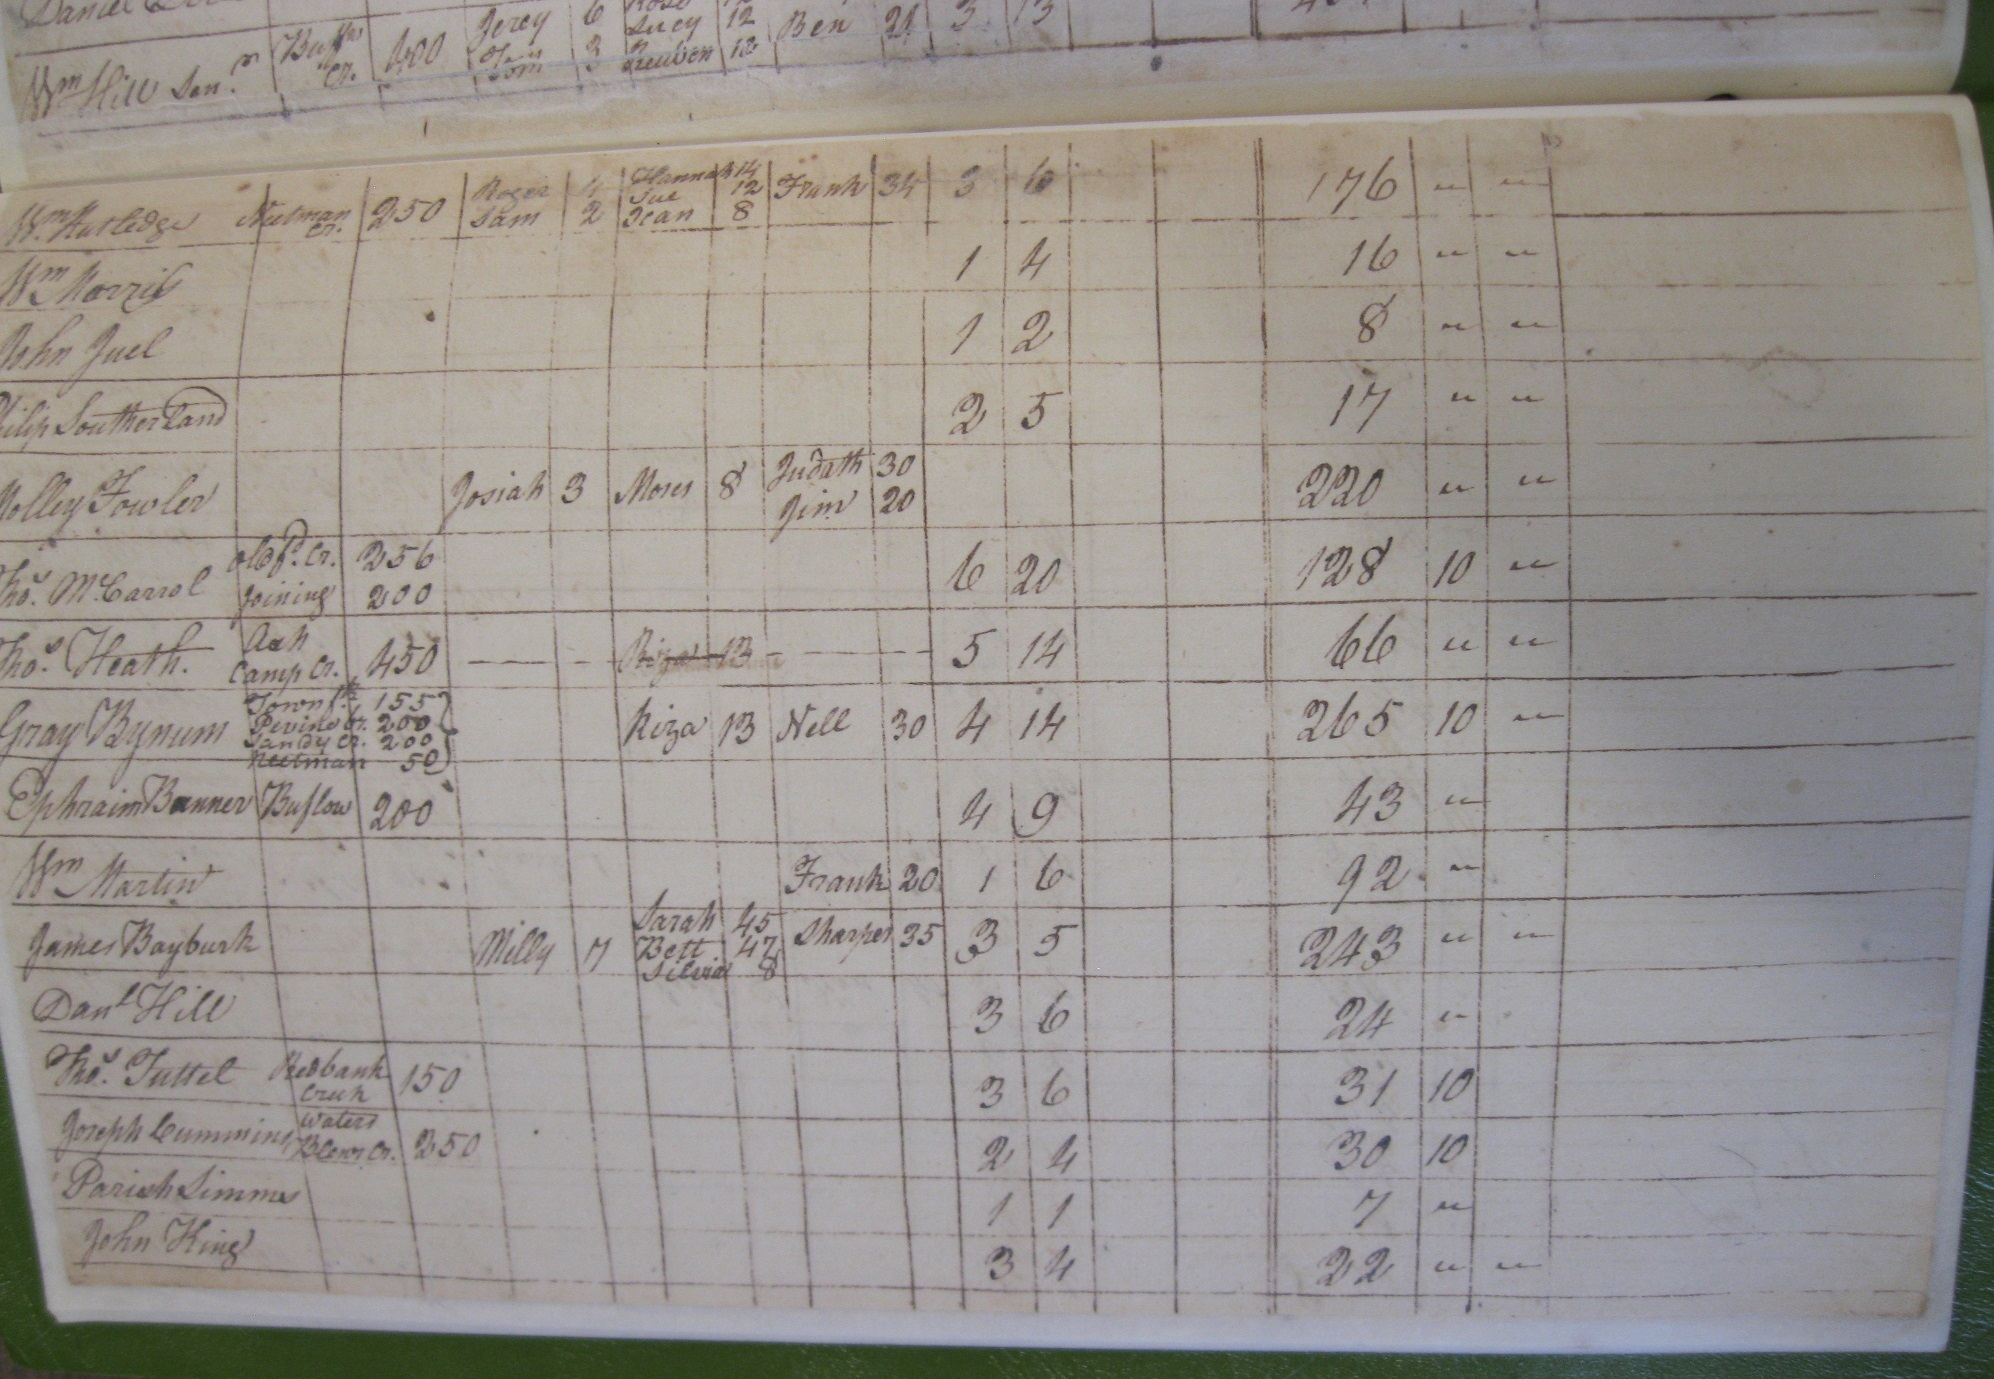 Daniel
Wm Hill Senr. Buffw Cr. 400 Jerey 6 Tom 3 Rose Lucy 12 Reuben 12 Ben 21 3 13
Wm. Rutledge Neetman Cr. 250 Roger 4 Sam 2 Hannah 14 Sue 12 Jean 8 Frank 34 3 6 176 " "
Wm Morris 1 4 16 " "
John Juel 1 2 8 " "
Philip Southerland 2 5 17 " "
Molley Fowler Josiah 3 Moses 8 Judath 30 Jim 20 220 " "
Thos. McCarrol Old fd. Cr. 256 Joining 200 6 20 128 10 "
Thos. Heath. Ash Camp Cr. 450 Riza 13 5 14 66 " "
Gray Bynum Town fk 155 Pevine Cr. 200 Sandy Cr. 200 Neetman 50 Kiza 13 Nell 30 4 14 265 10 "
Ephraim Banner Buflow 200 4 9 43 "
Wm Martin Frank 20 1 6 92 "
James Bayburk Milly 7 Sarah 45 Bett 47 Silvia 8 Sharper 35 3 5 243 " "
Danl Hill 3 6 24 "
Thos. Tuttel Redbank Creek 150 3 6 31 10
Joseph Cummins Waters Blews Cr. 250 2 4 30 10
Parish Simms 1 1 7 "
John King 3 4 22 " "